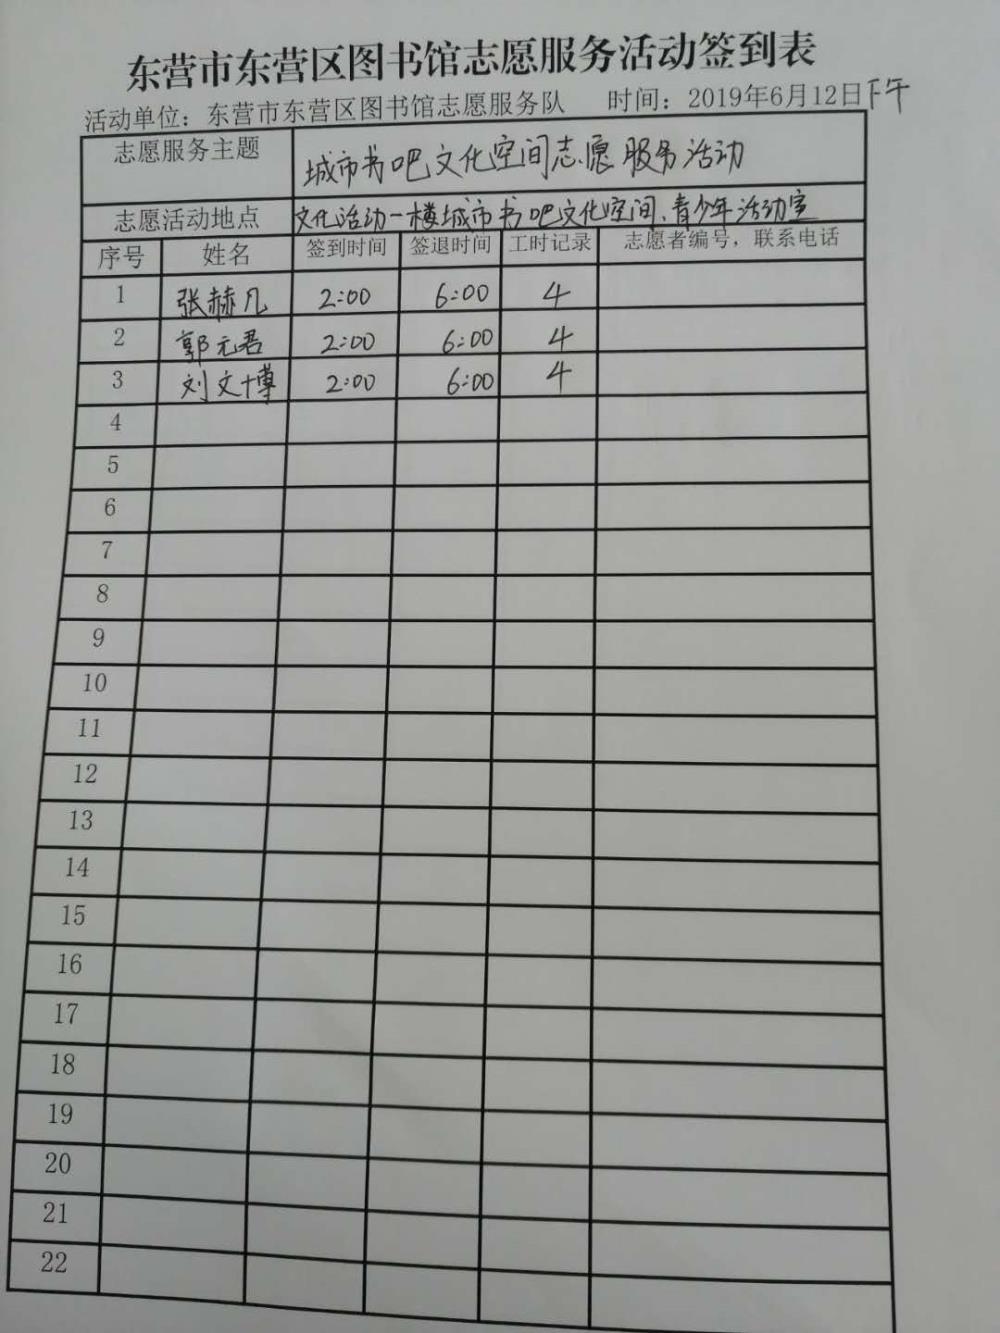 东营市东营区图书馆志愿服务活动签到表
活动单位：东营市东营区图书馆志愿服务队 时间：2019年6月12日下午
志愿服务主题 城市书吧文化空间志愿服务活动
志愿活动地点 文化活动一楼城市书吧文化空间、青少年活动室
序号 姓名 签到时间 签退时间 工时记录 志愿者编号，联系电话
1 张赫凡 2:00 6:00 4
2 郭元君 2:00 6:00 4
3 刘文博 2:00 6:00 4
4
5
6
7
8
9
10
11
12
13
14
15
16
17
18
19
20
21
22